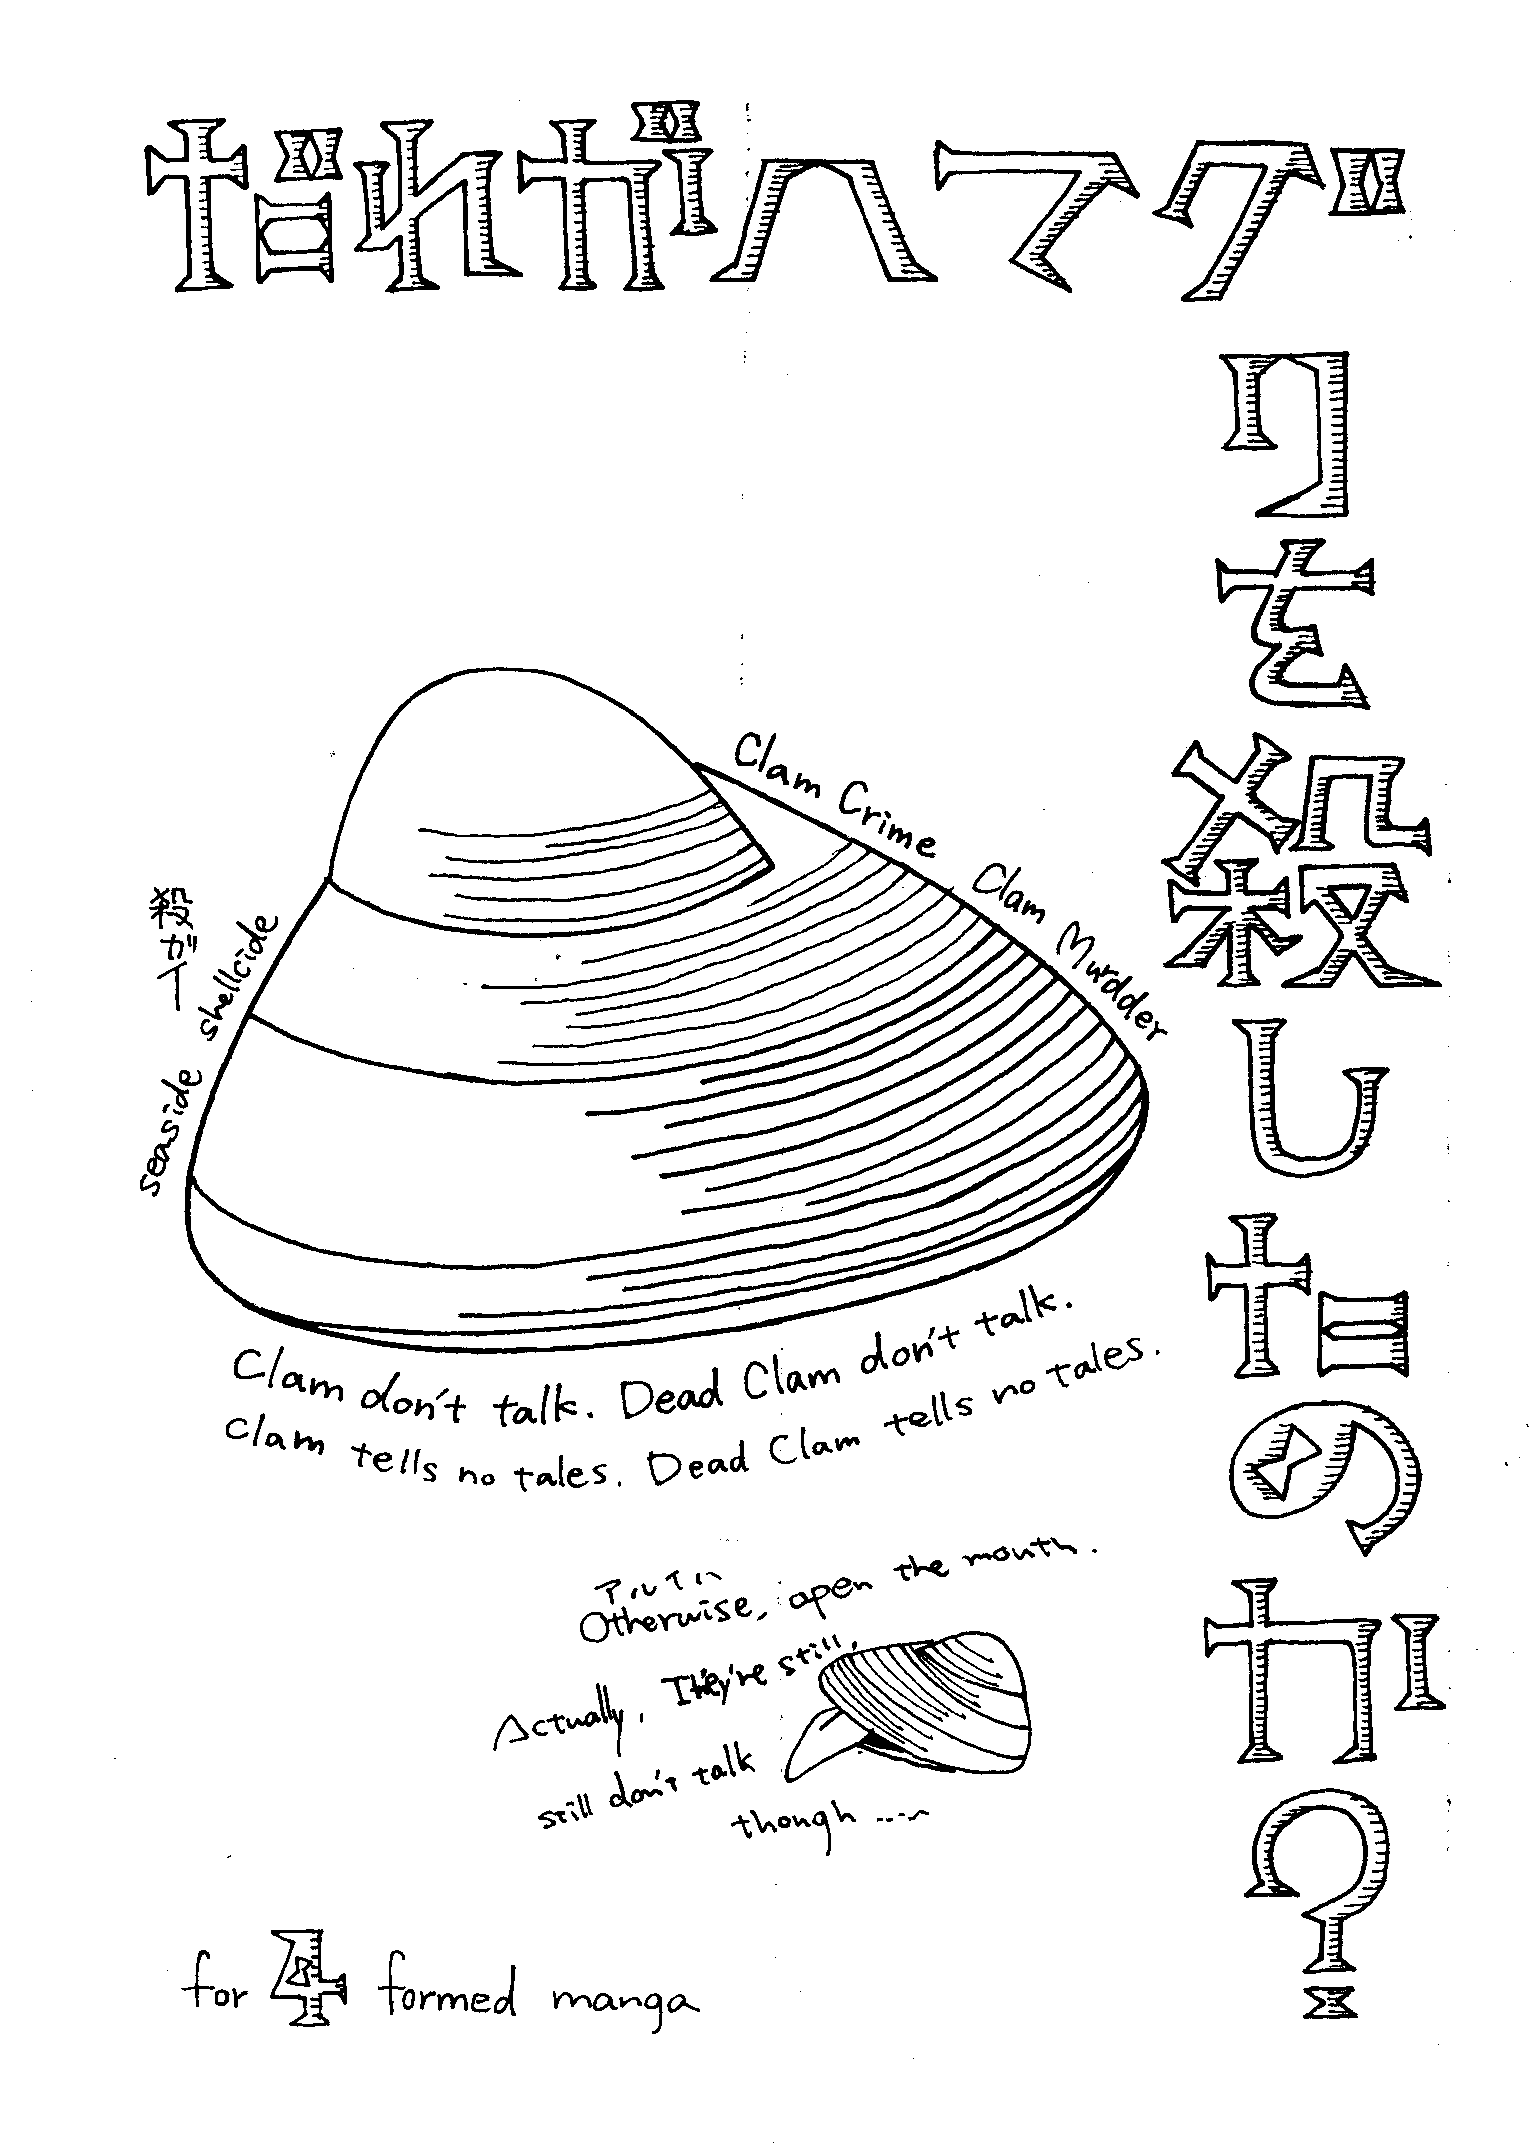 だれがハマグ
リを殺したのか?
Clam Crime Clam Murdder
殺ガイ
seaside shellcide
Clam don't talk. Dead Clam don't talk.
Clam tells no tales. Dead Clam tells no tales.
アルイハ
Otherwise, open the mouth.
Actually, They're still,
still don't talk
though .....
for 4 formed manga